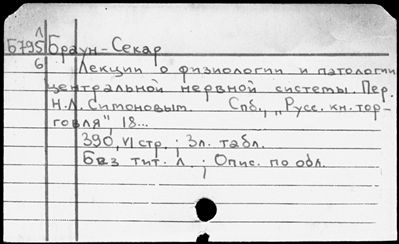 Л
Б795 Браун-Секар
6 Лекции о физиологии и патологии
центральной нервной системы. Пер.
Н.Л. Симоновым. Спб., „Русс. кн. тор-
говля", 18...
390, VI стр.; 3л. табл.
Без тит. л.; Опис. по обл.